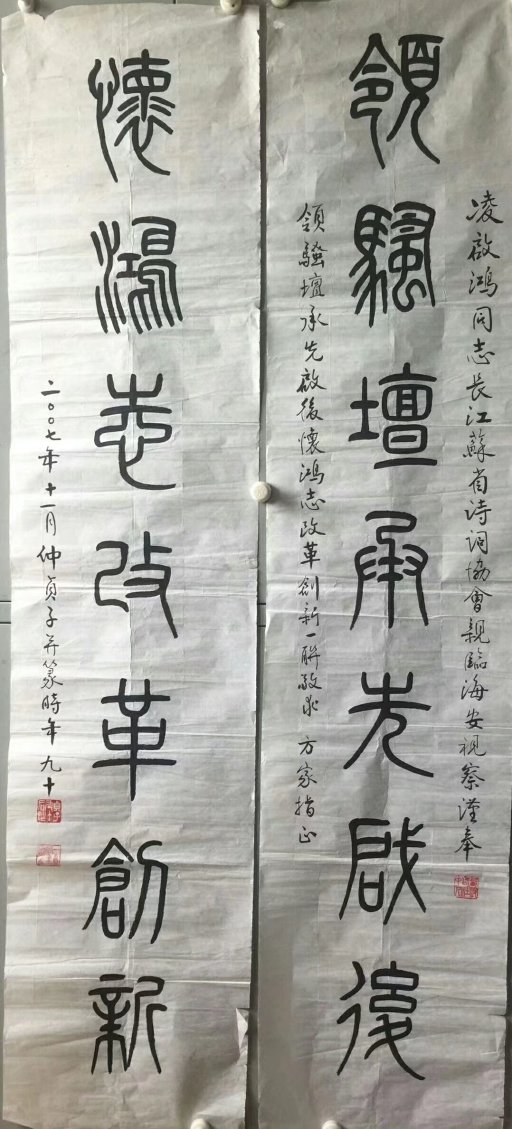 凌啟鴻同志長江蘇省诗词協會親臨海安視察謹奉
領騷壇承先啟後
領騷壇承先啟後懷鴻志改革創新一聯敬求 方家指正
懷鴻志改革創新
二〇〇七年十一月仲貞子并篆時年九十